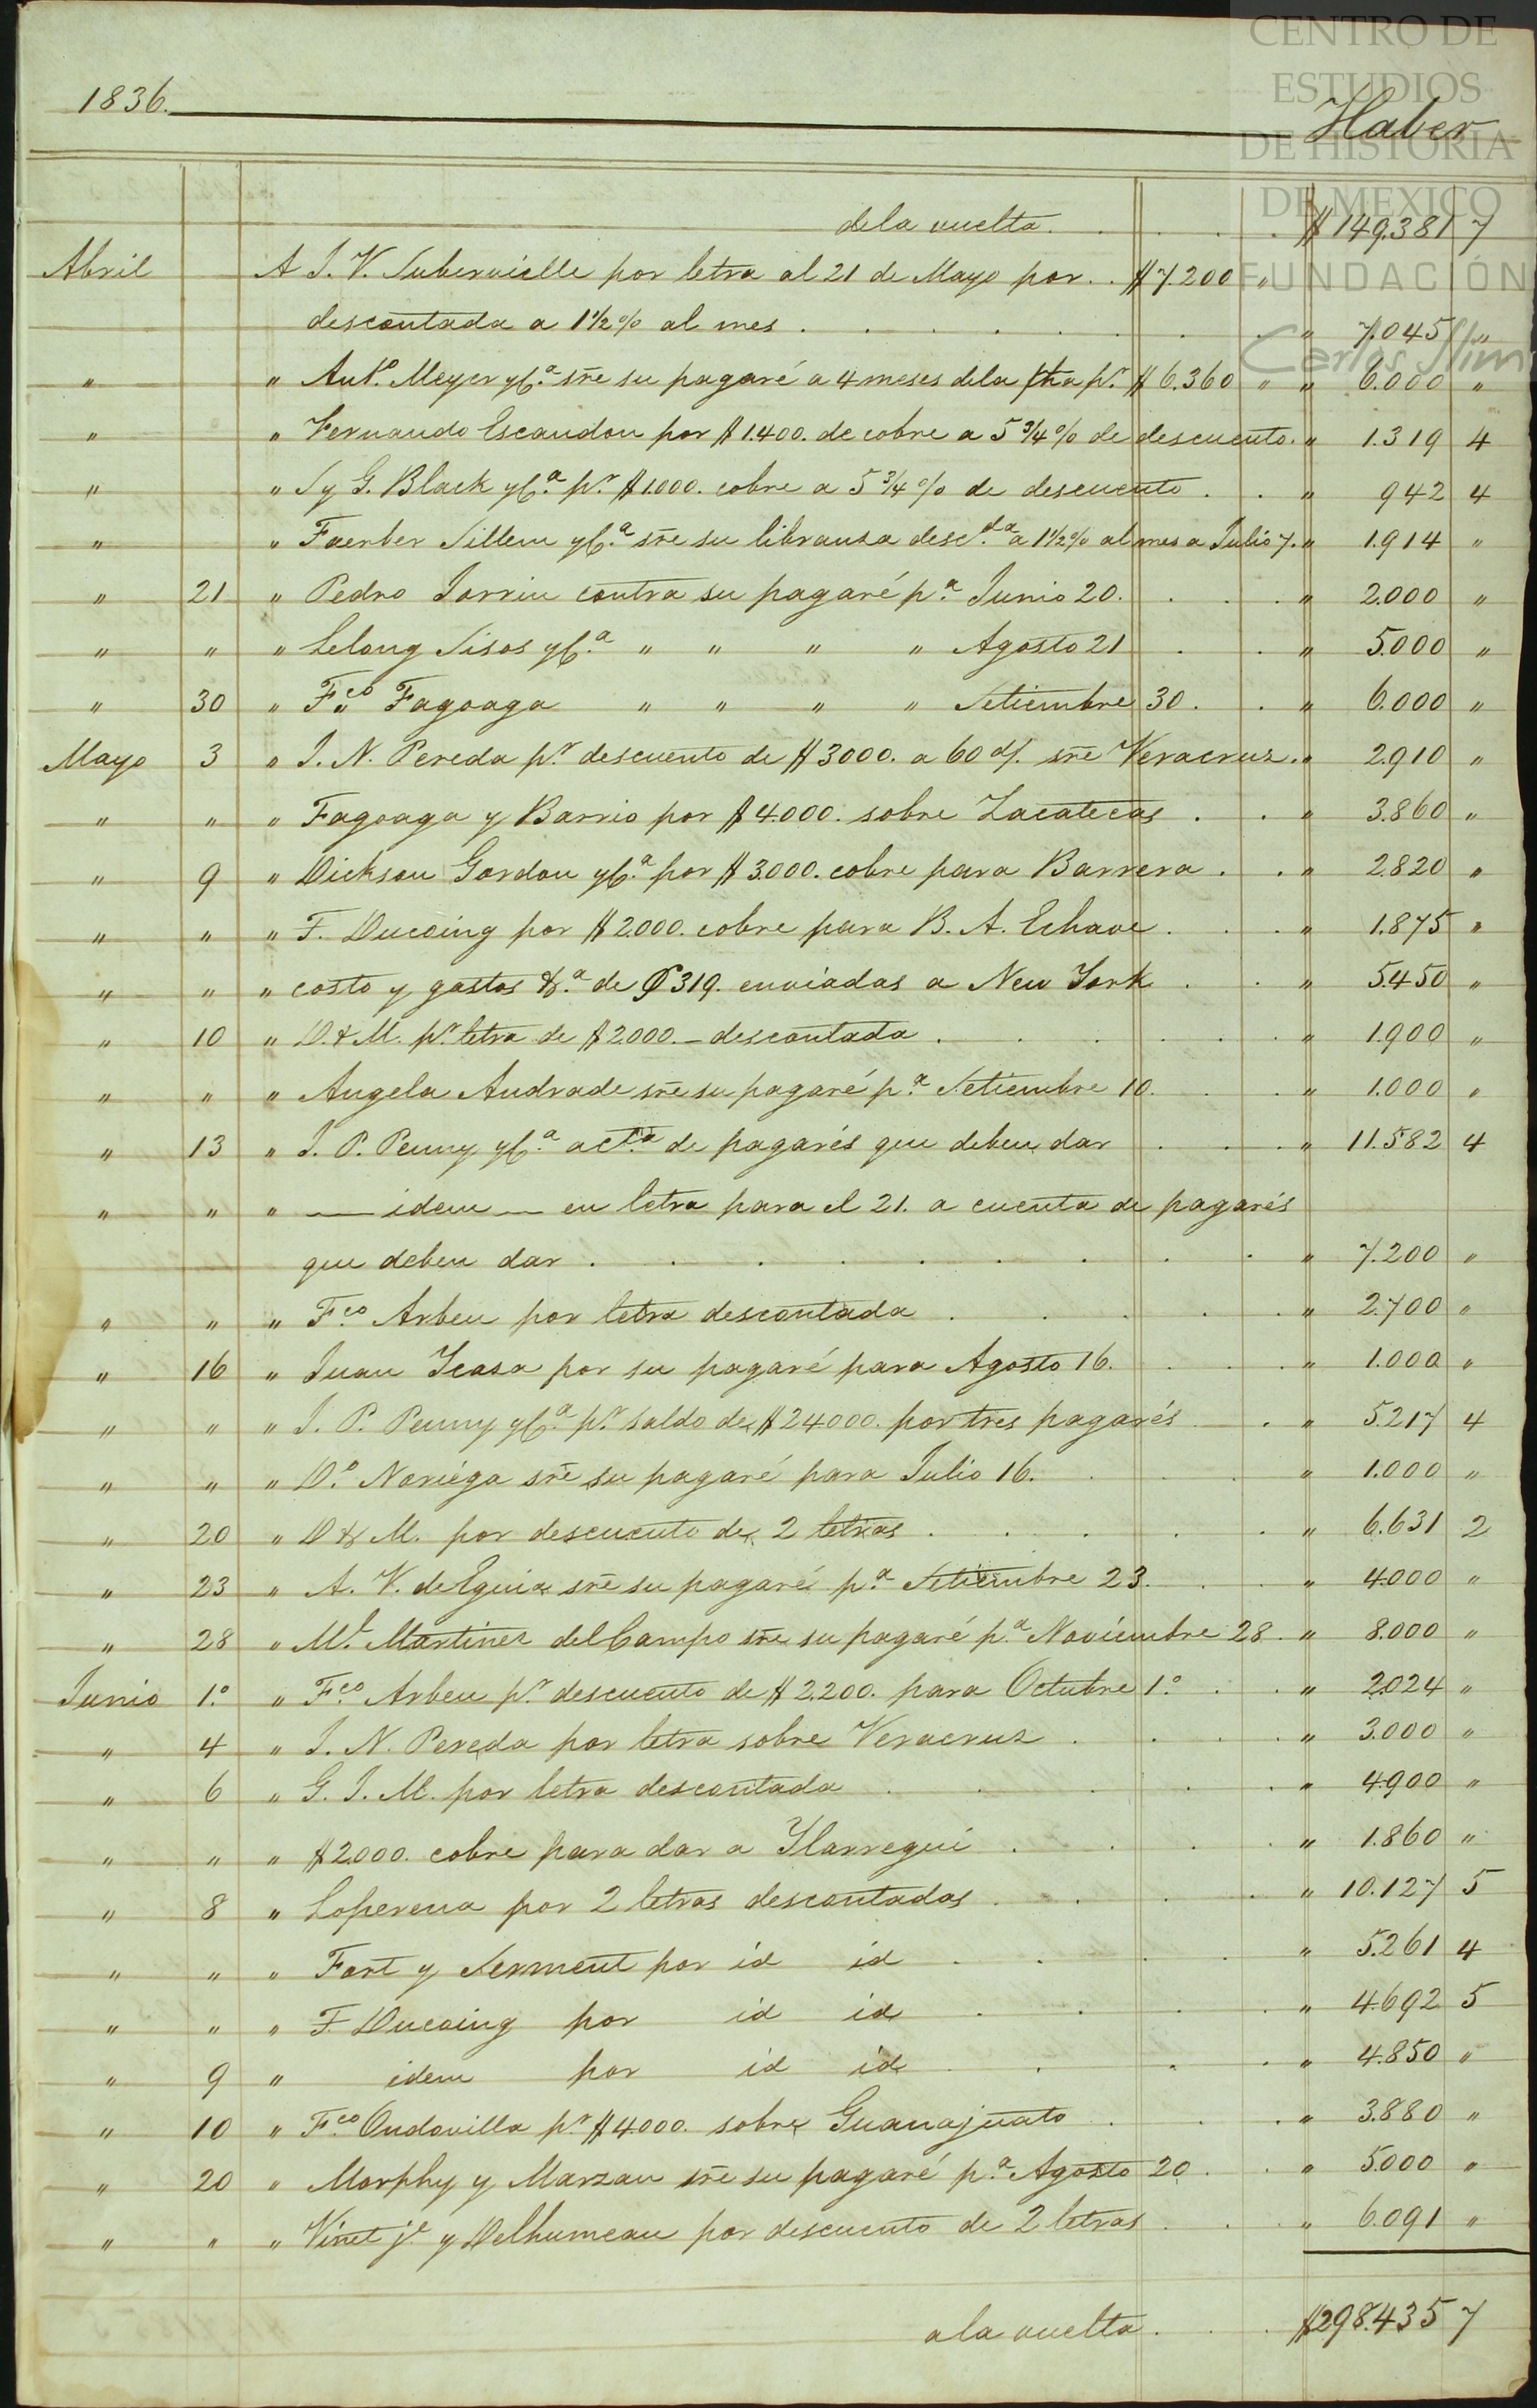 CENTRO DE
ESTUDIOS
DE HISTORIA
DE MEXICO
FUNDACIÓN
Carlos Slim
1836. Haber
dela vuelta. . . . . $ 149,381 7
Abril A J. V. Subervielle por letra al 21 de Mayo por . . $ 7.200 "
descontada a 1½% al mes . . . . . . . " 7.045 "
" " Ant.º Meyer yC.ª sre su pagaré a 4 meses dela fha p.r $ 6.360 " " 6.000 "
" " Fernando Escandon por $ 1.400. de cobre a 5¾% de descuento. " 1.319 4
" " S y G. Black yC.ª p.r $ 1.000. cobre a 5¾% de descuento . . " 942 4
" " Faerber Sillem yC.ª sre su libranza desc.da a 1½% al mes a Julio 7. " 1.914 "
" 21 " Pedro Jorrin contra su pagaré p.ª Junio 20. . . . " 2.000 "
" " " Lelong Sisos yC.ª " " " " Agosto 21 . . " 5.000 "
" 30 " F.co Fagoaga " " " " Setiembre 30 . . " 6.000 "
Mayo 3 " J. N. Pereda p.r descuento de $ 3000. a 60 d/. sre Veracruz . " 2.910 "
" " " Fagoaga y Barrio por $ 4.000. sobre Zacatecas . . " 3.860 "
" 9 " Dickson Gordon yC.ª por $ 3.000. cobre para Barrera . . " 2.820 "
" " " F. Ducoing por $ 2.000. cobre para B. A. Echave . . . " 1.875 "
" " " costo y gastos &.ª de 319. enviadas a New York . . " 5.450 "
" 10 " D. & M. p.r letra de $ 2.000. – descontada . . . . . " 1.900 "
" " " Angela Andrade sre su pagaré p.ª Setiembre 10. . . " 1.000 "
" 13 " J. P. Penny yC.ª a cta de pagarés que deben dar . . . " 11.582 4
" " " — idem — en letra para el 21. a cuenta de pagarés
que deben dar . . . . . . . . . " 7.200 "
" " " F.co Arbeu por letra descontada . . . . . " 2.700 "
" 16 " Juan Icasa por su pagaré para Agosto 16. . . . " 1.000 "
" " " J. P. Penny yC.ª p.r saldo de $ 24.000. por tres pagarés . . " 5.217 4
" " " D.º Noriega sre su pagaré para Julio 16. . . " 1.000 "
" 20 " D & M. por descuento de 2 letras . . . . . " 6.631 2
" 23 " A. V. de Eguia sre su pagaré p.ª Setiembre 23. . . " 4.000 "
" 28 " M.l Martinez del Campo sre su pagaré p.ª Noviembre 28 . " 8.000 "
Junio 1.º " F.co Arbeu p.r descuento de $ 2.200. para Octubre 1.º . . " 2.024 "
" 4 " J. N. Pereda por letra sobre Veracruz . . . . " 3.000 "
" 6 " G. J. M. por letra descontada . . . . . " 4.900 "
" " " $ 2.000. cobre para dar a Ylarregui . . . . " 1.860 "
" 8 " Loperena por 2 letras descontadas . . . . " 10.127 5
" " " Fort y Serment por id id . . . . " 5.261 4
" " " F. Ducoing por id id . . . . " 4.692 5
" 9 " idem por id id . . . . " 4.850 "
" 10 " F.co Ondovilla p.r $ 4.000. sobre Guanajuato . . . " 3.880 "
" 20 " Morphy y Marzan sre su pagaré p.ª Agosto 20 . . " 5.000 "
" " " Vinet j.e y Delhumeau por descuento de 2 letras . . . " 6.091 "
a la vuelta . . . $ 298.435 7